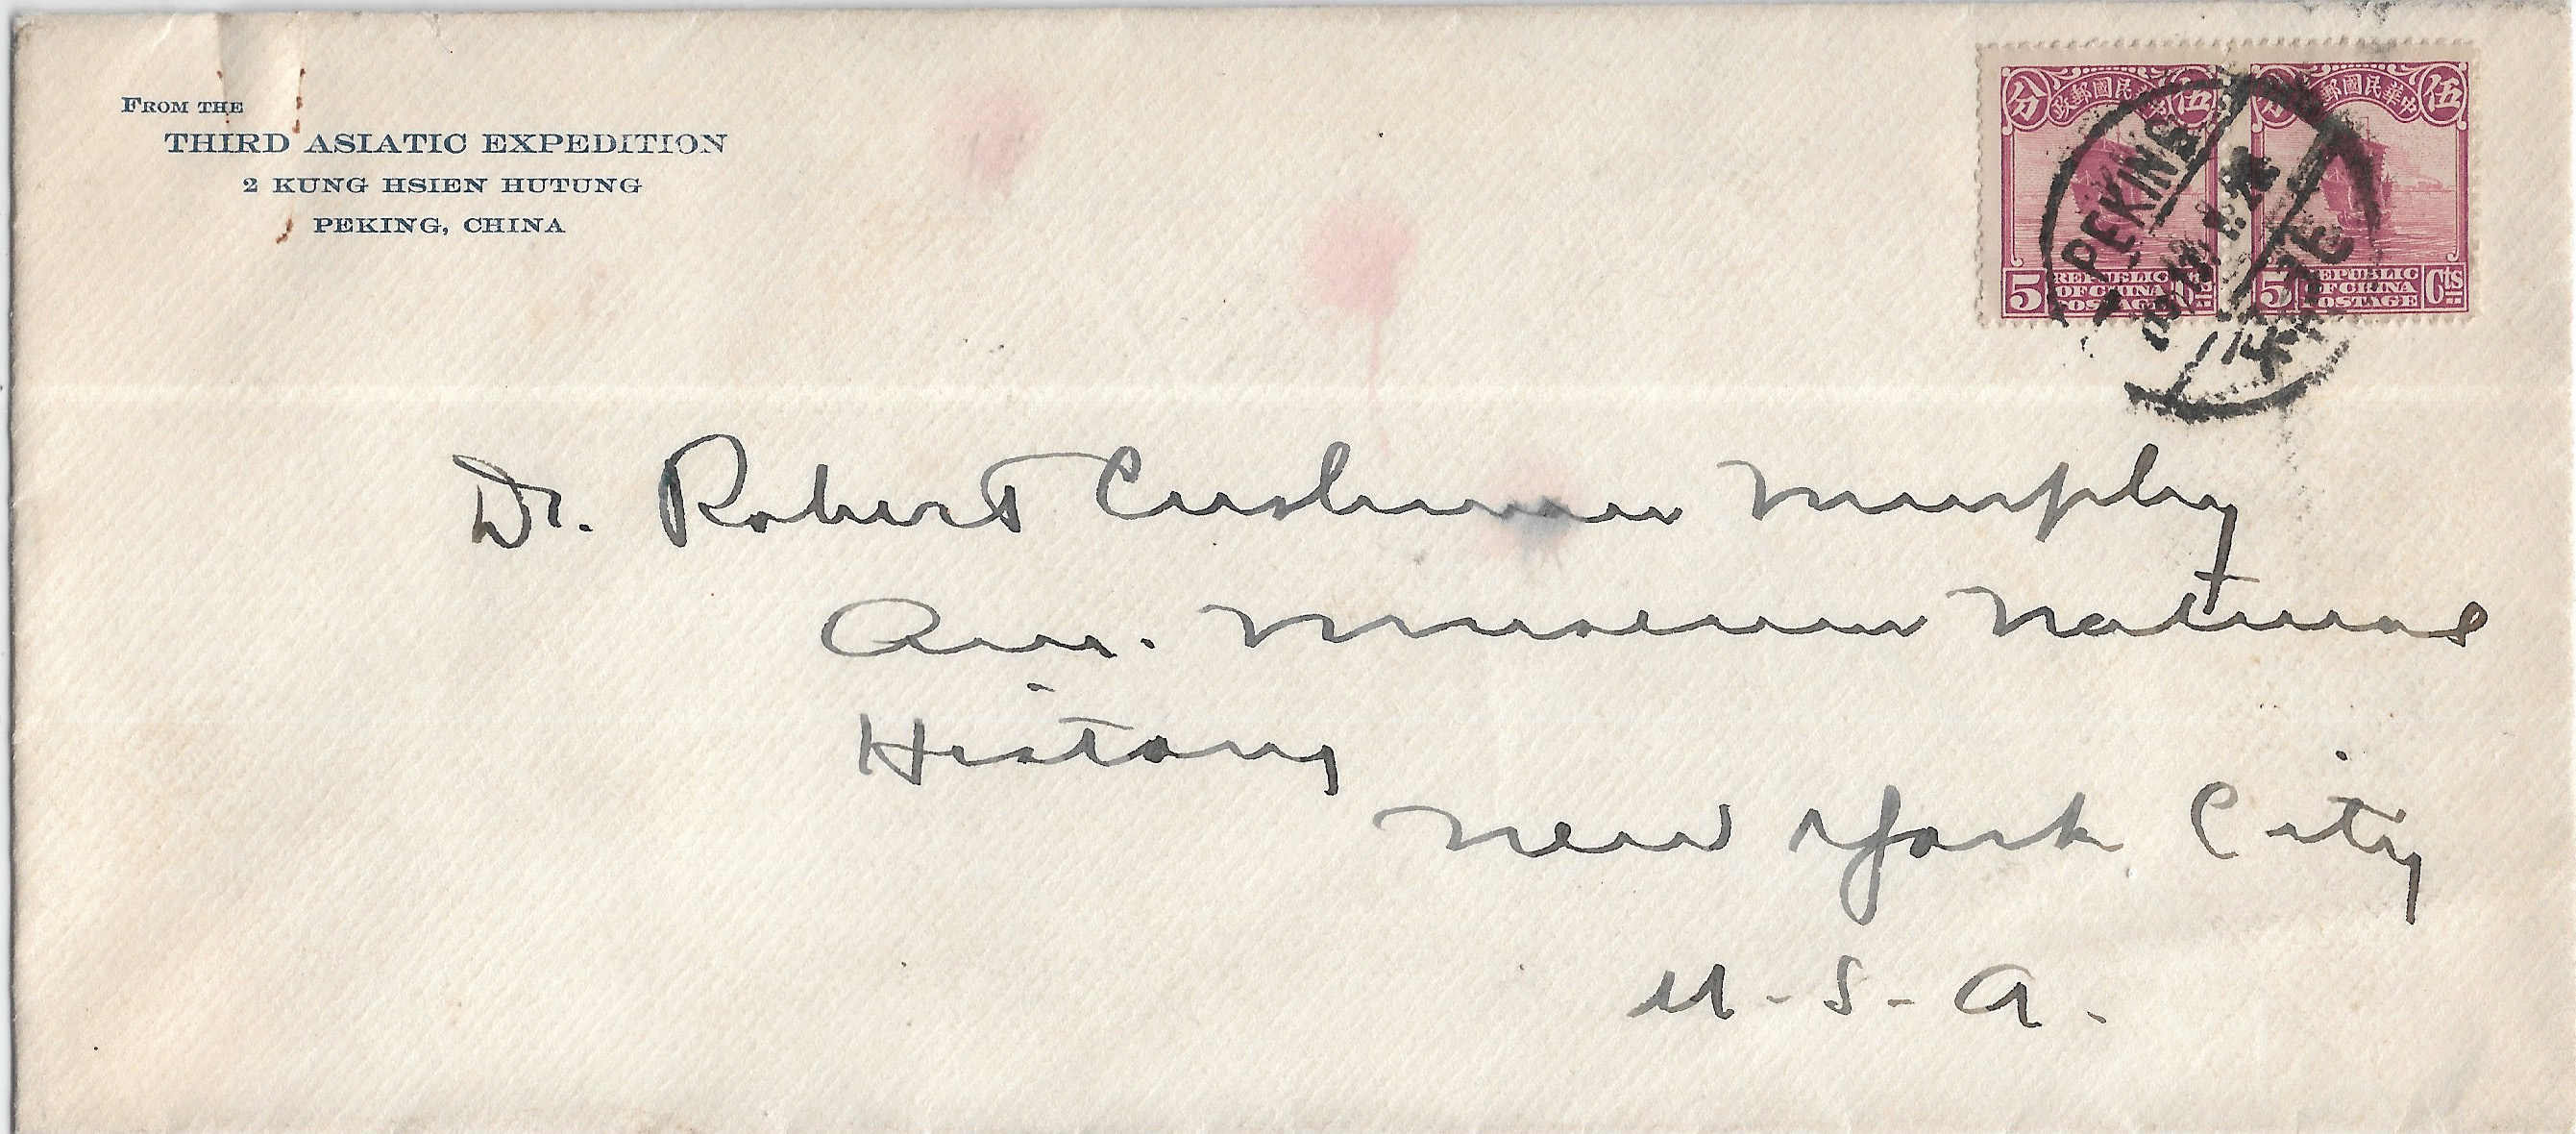 FROM THE
THIRD ASIATIC EXPEDITION
2 KUNG HSIEN HUTUNG
PEKING, CHINA
分 郵國民 伍
分 郵國民華中 伍
5 REPUBLIC OF CHINA POSTAGE
5 REPUBLIC OF CHINA POSTAGE Cts
PEKING
北京
Dr. Robert Cushman Murphy
Am. Museum Natural
History
New York City
U-S-A.